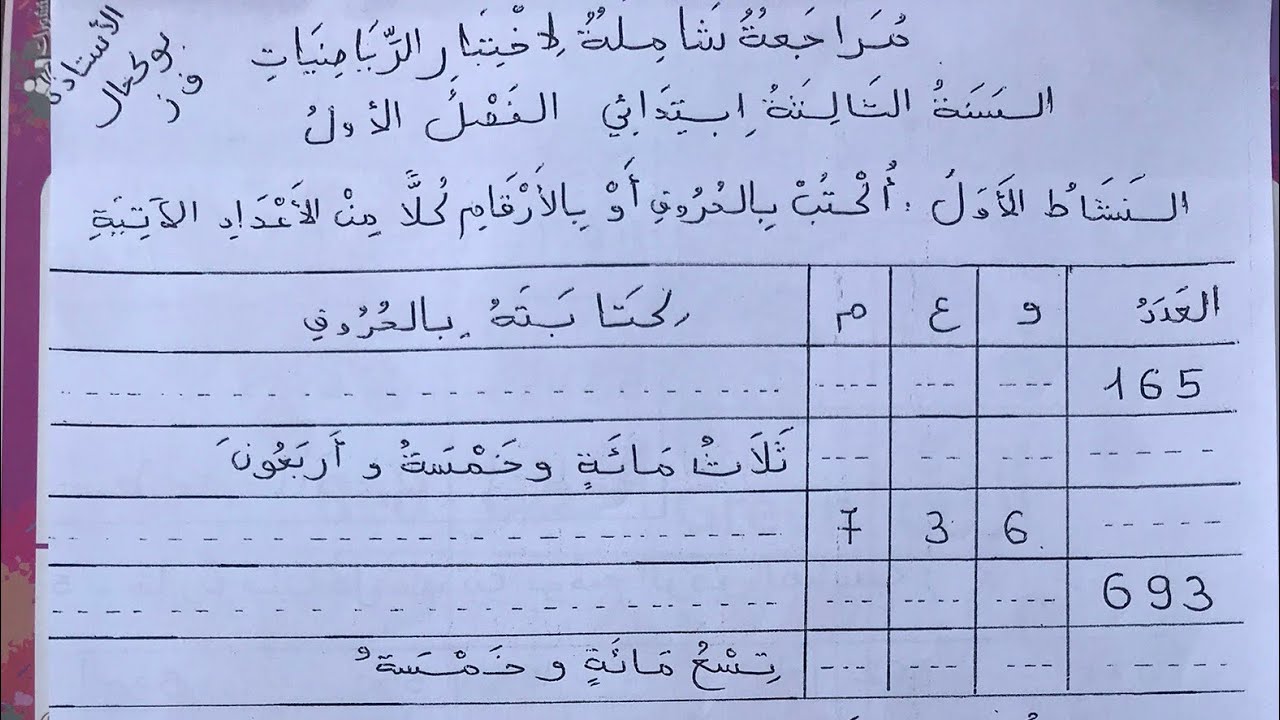 الأستاذة
بوكحال
ف ز
مُرَاجَعَةٌ شَامِلَةٌ لِاخْتِبَارِ الرِّيَاضِيَاتِ
السَنَةُ الثَالِثَةُ اِبتِدَائِي الفَصْلُ الأولُ
النَشَاطُ الأَوَلُ : أُكْتُبْ بِالحُرُوفِ أَوْ بِالأَرْقَامِ كُلاًّ مِنْ الأَعْدَادِ الآتِيَةِ
العَدَدُ و ع م كِتَابَتَهُ بِالحُرُوفِ
165 --- --- ---- ------------
----- --- --- ---- ثَلَاثُ مَائَةٍ وخَمْسَةُ و أَربَعُونَ
----- 6 3 7 ------------
693 ---- ---- ---- ------------
----- --- --- ---- تِسْعُ مَائَةٍ و خَمْسَةُ